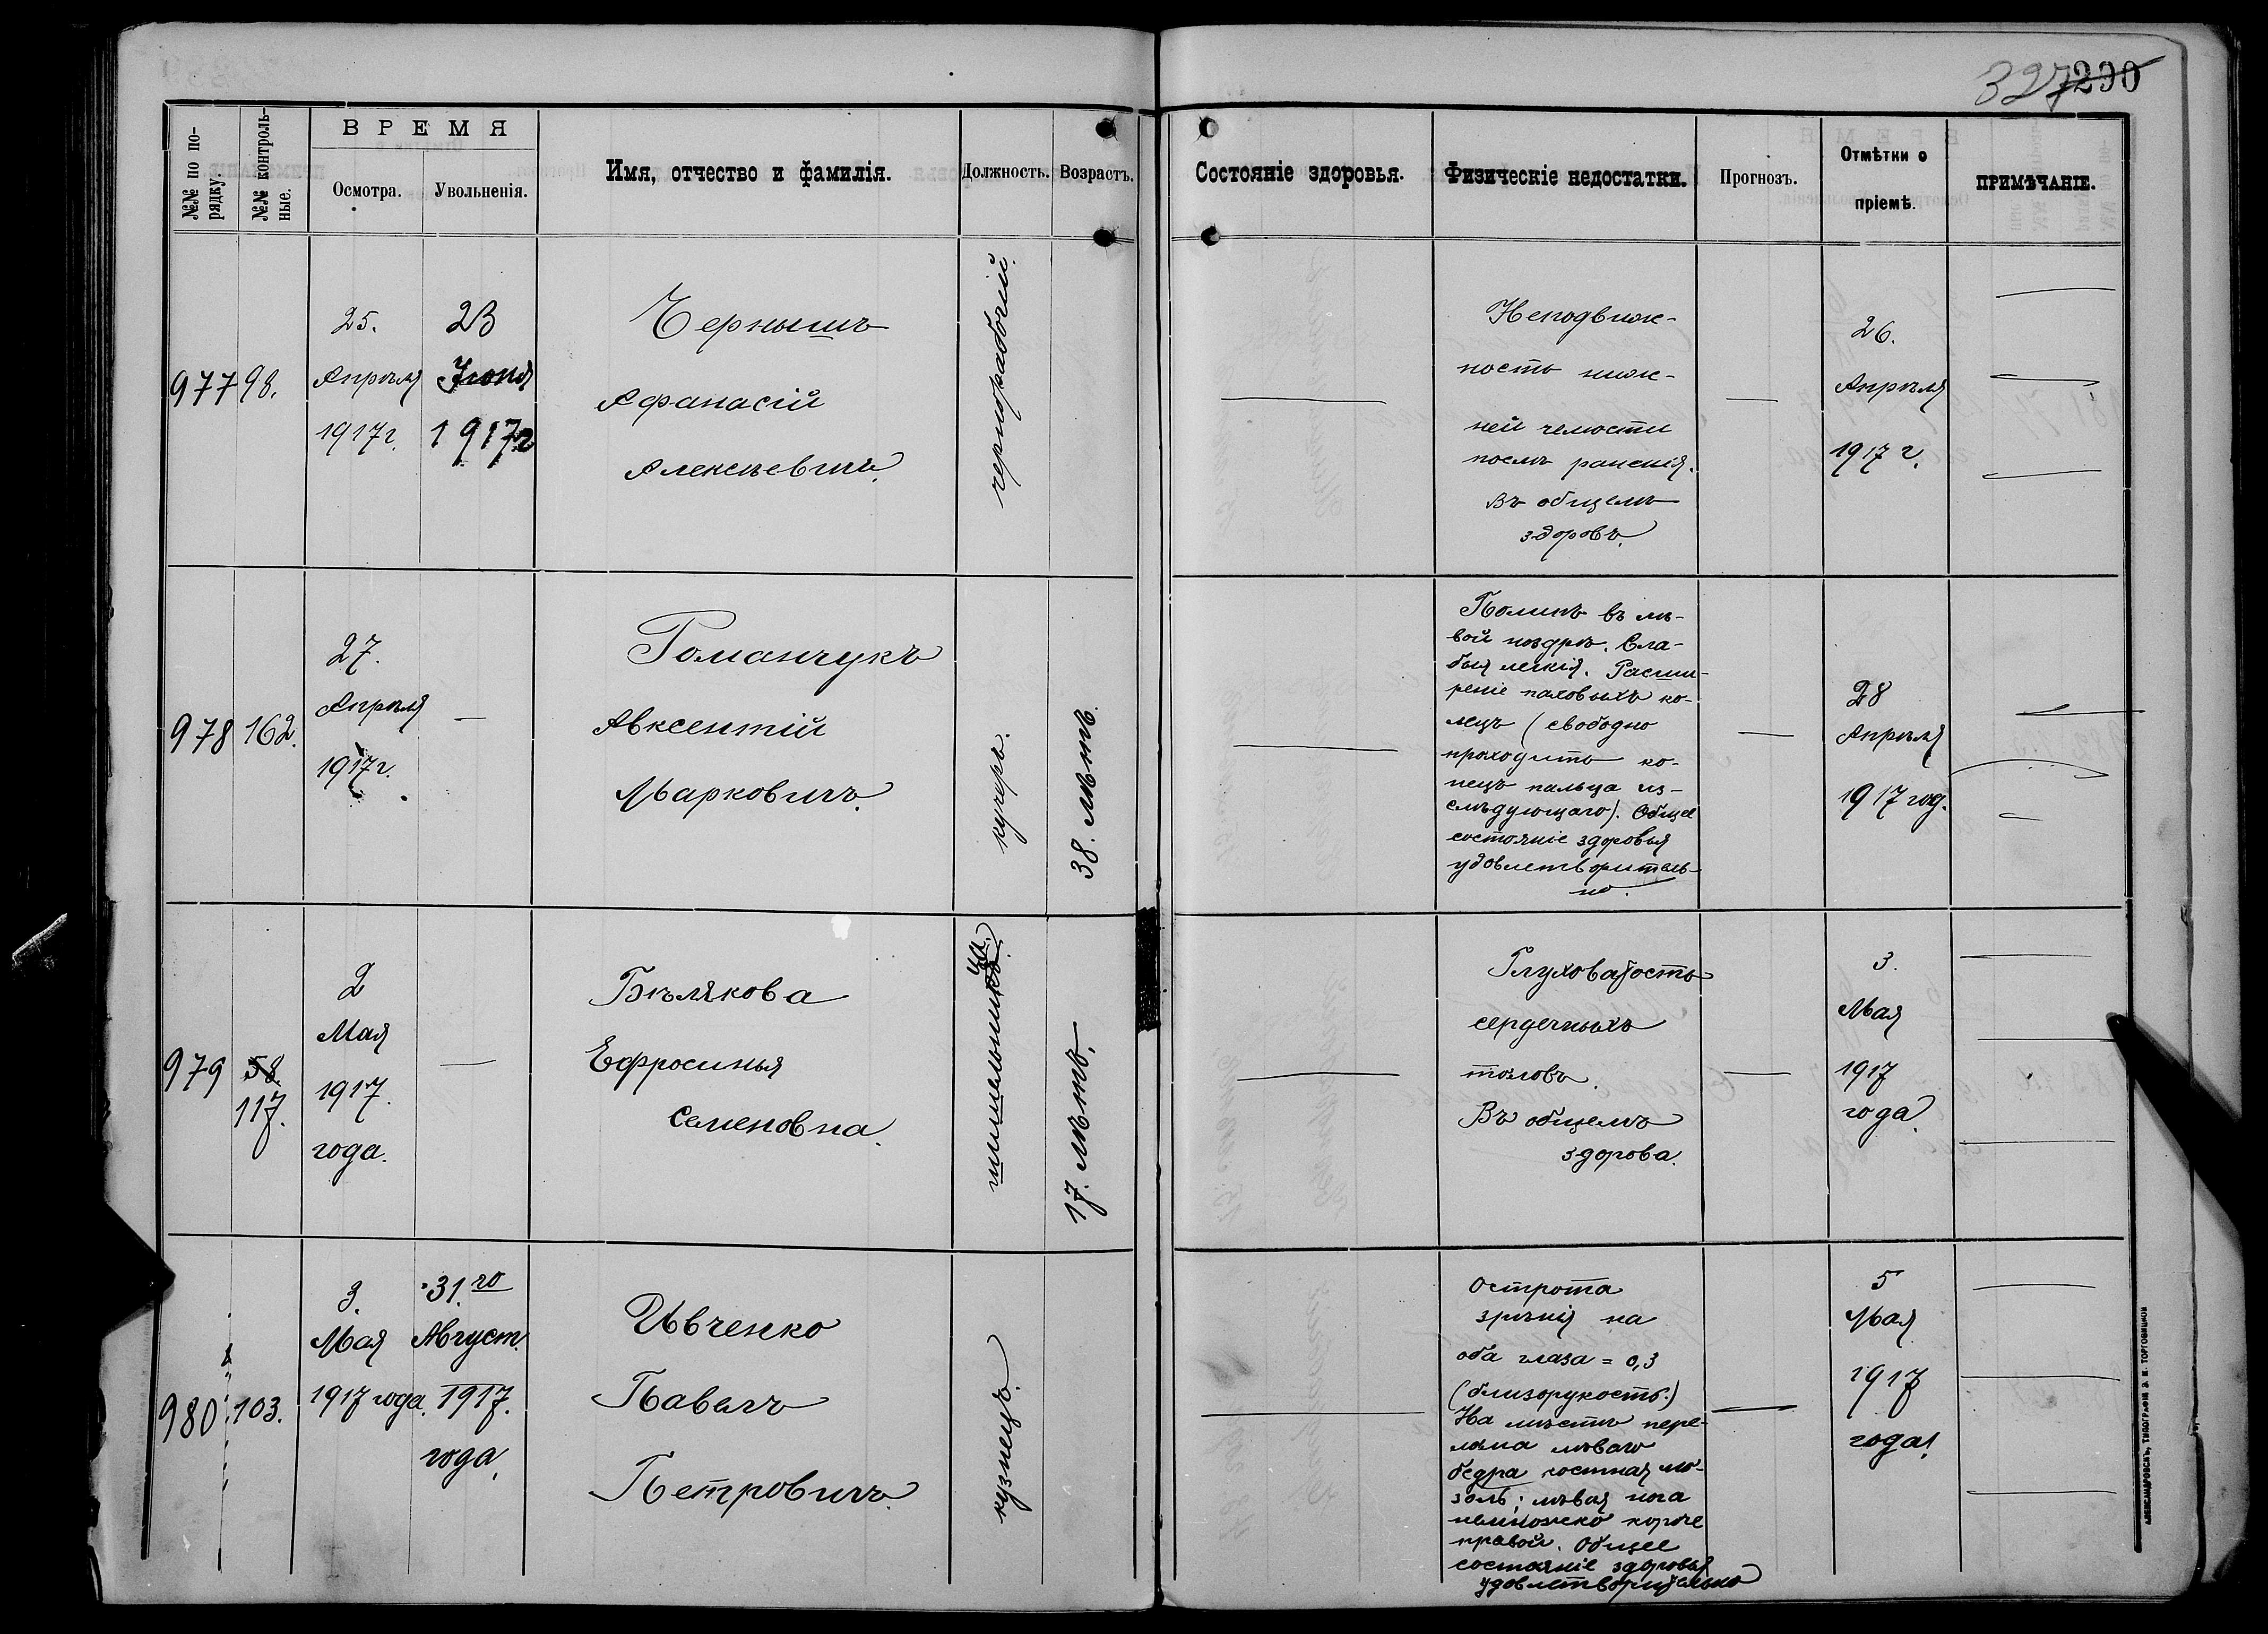 327 290
№№ по по-
рядку.
№№ контроль-
ные.
ВРЕМЯ
Осмотра.
Увольненія.
Имя, отчество и фамилія.
Должность.
Возрастъ.
Состояніе здоровья.
Физическіе недостатки.
Прогнозъ.
Отмѣтки о
пріемѣ.
ПРИМѢЧАНІЕ.
977
98.
25.
Апрѣля
1917 г.
23
Іюня
1917 г
Чернышъ
Афанасій
Алексѣевичъ.
чернорабочій.
—
Неподвиж-
ность ниж-
ней челюсти
послѣ раненія.
Въ общемъ
здоровъ.
—
26.
Апрѣля
1917 г.
978
162.
27.
Апрѣля
1917 г.
—
Романчукъ
Авксентій
Марковичъ.
кучеръ.
38. лѣтъ.
—
Полипъ въ лѣ-
вой ноздрѣ. Сла-
быя легкія. Расши-
реніе паховыхъ ко-
лецъ (свободно
проходитъ ко-
нецъ пальца из-
слѣдующаго). Общее
состояніе здоровья
удовлетворитель-
но.
—
28
Апрѣля
1917 год.
979
58.
117.
2
Мая
1917.
года.
—
Бѣлякова
Ефросинья
Семеновна.
шпильщица.
17. лѣтъ.
—
Глуховатость
сердечныхъ
тоновъ.
Въ общемъ
здорова.
—
3.
Мая
1917
года.
980
103.
3.
Мая
1917 года.
31.го
Август.
1917.
года.
Ивченко
Павелъ
Петровичъ.
кузнецъ.
—
Острота
зрѣнія на
оба глаза = 0,3
(близорукость.)
На мѣстѣ пере-
лома лѣваго
бедра костная мо-
золь; лѣвая нога
немножко короче
правой. Общее
состояніе здоровья
удовлетворительно
—
5
Мая
1917
года.
АЛЕКСАНДРОВСКЪ, ТИПОГРАФІЯ